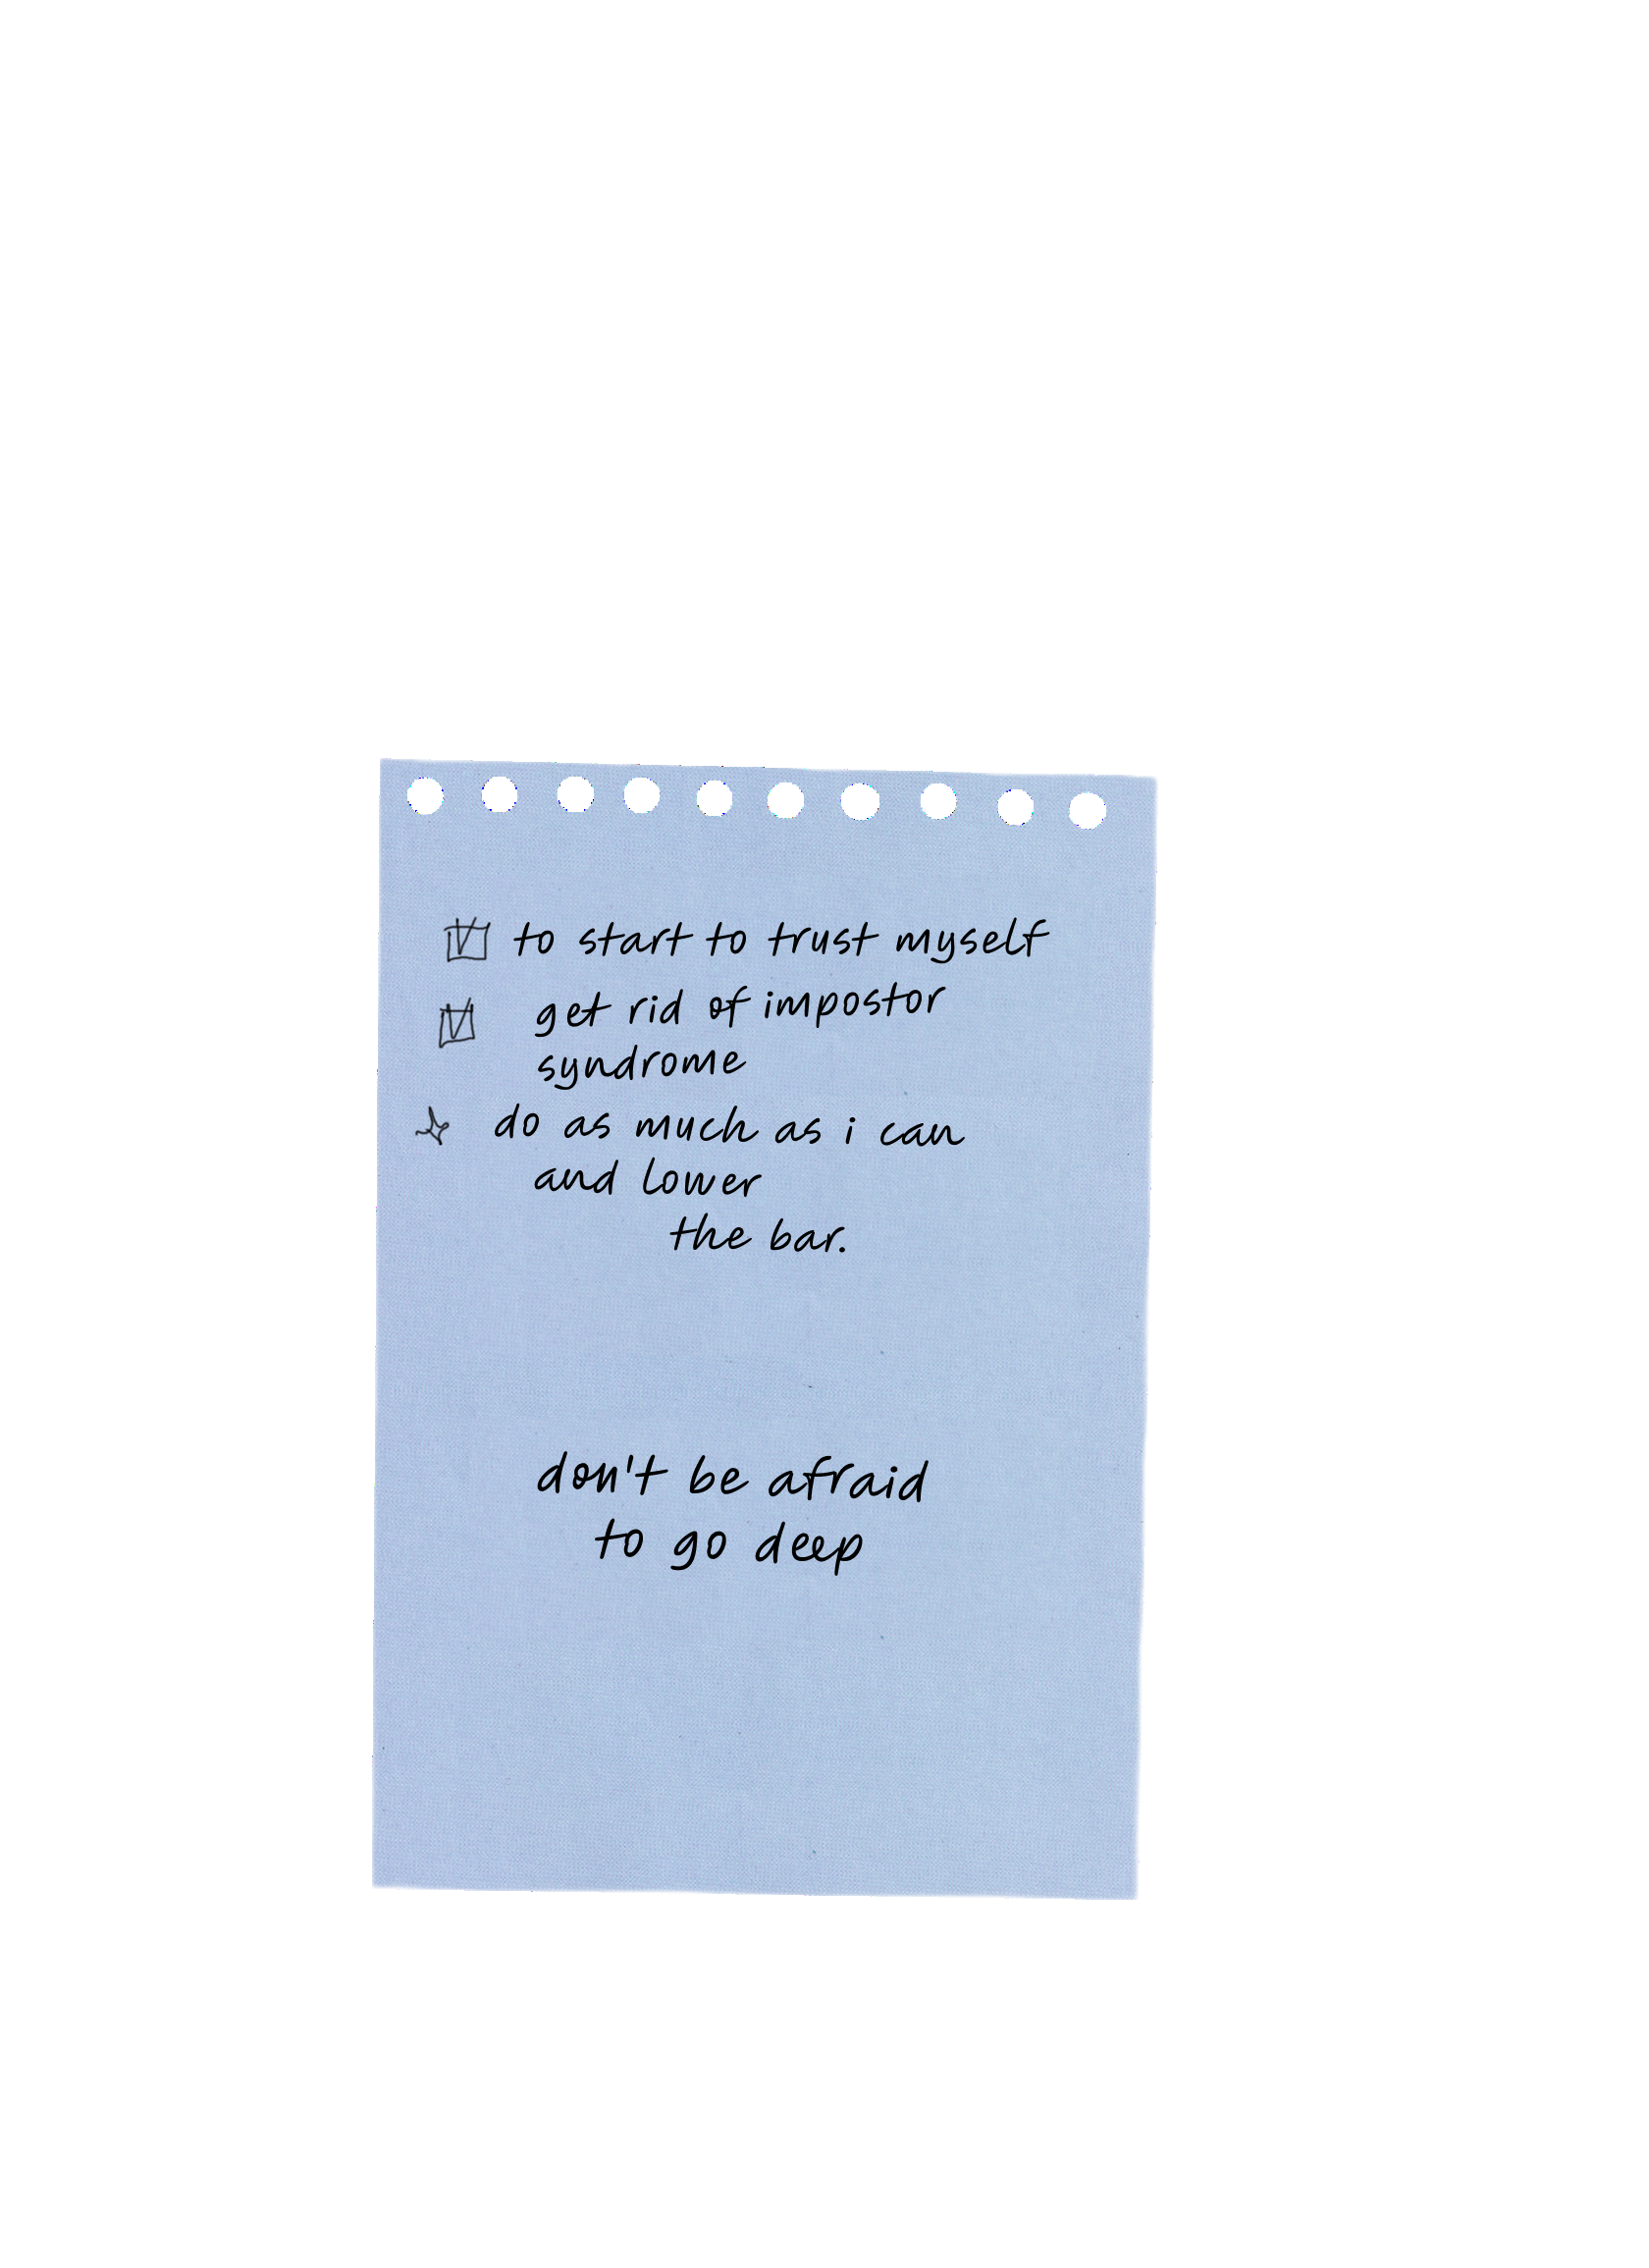 to start to trust myself
get rid of impostor
syndrome
do as much as i can
and lower
the bar.
don't be afraid
to go deep